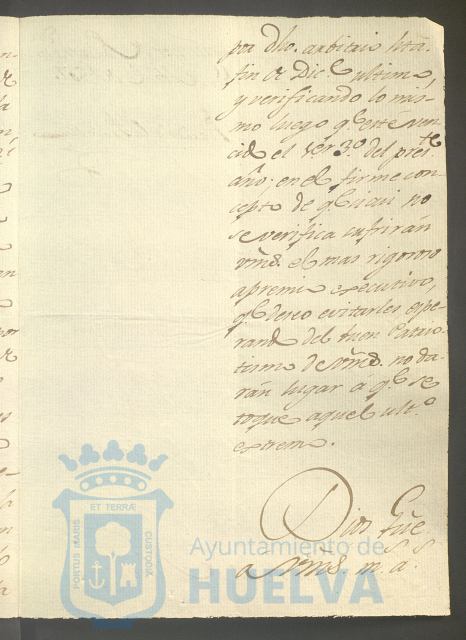 por dho. arbitrio hta.
fin de Dice. ultimo,
y verificando lo mis-
mo luego qe. esté ven-
cido el 1er. 3o. del preste.
año: en el firme con-
cepto de qe. si asi no
se verifica sufrirán
Vmds. el mas rigoroso
apremio executivo,
qe. deseo evitarles espe-
rando del buen Patrio-
tismo de Vmds. no da-
rán lugar á qe. se
toque aquel ulto.
extremo.
Dios gûe
a Vmds. m. a.s
PORTUS MARIS ET TERRÆ CUSTODIA
Ayuntamiento de
HUELVA